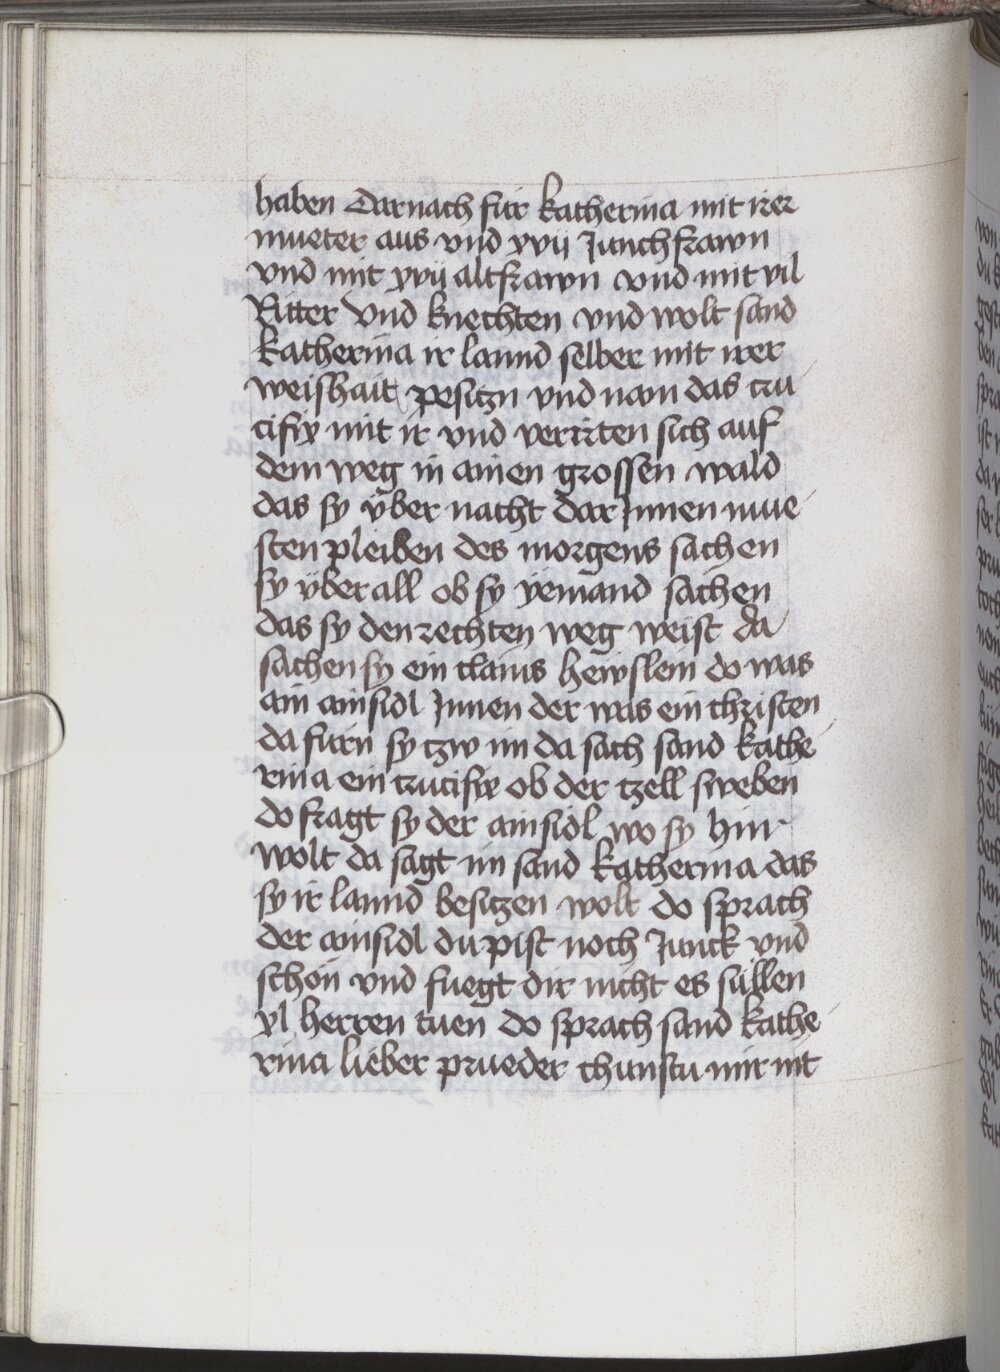 haben Darnach für katherina mit irer
mueter aus vnd xvij Junchfrawn
vnd mit xvij altfrawn vnd mit vil
Ritter vnd knechten vnd wolt sand
katherina ir lannd selber mit irer
weishait pesitzn vnd nam das cru
cifix mit ir vnd verirten sich auf
dem weg in ainen grossen wald
das sy vber nacht dar Innen mue
sten pleiben des morgens sachen
sy vber all ob sy yemand sachen
das sy den rechten weg weist da
sachen sy ein clains hewslein do was
ain ainsidl Innen der was ein christen
da furn sy tzw im da sach sand kathe
rina ein crucifix ob der tzell sweben
do fragt sy der ainsidl wo sy hin
wolt da sagt im sand katherina das
sy ir lannd besitzen wolt do sprach
der ainsidl du pist noch Junck vnd
schon vnd fuegt dir nicht es sullen
vl herren tuen do sprach sand kathe
rina lieber prueder thunstu mir nit